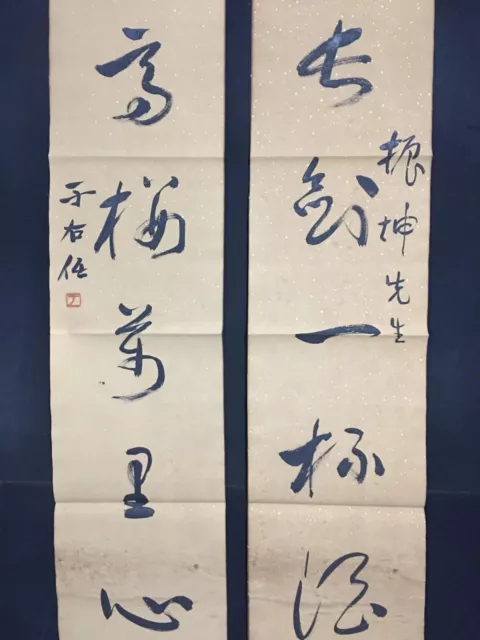 振坤先生
長劍一杯酒
高樓萬里心
于右任